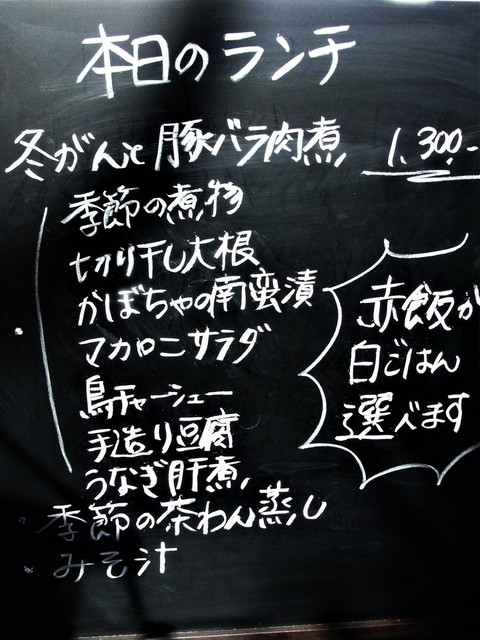 本日のランチ
冬がんと豚バラ肉煮 1,300.-
季節の煮物
切り干し大根
かぼちゃの南蛮漬
マカロニサラダ
鳥チャーシュー
手造り豆腐
うなぎ肝煮
季節の茶わん蒸し
みそ汁
赤飯か
白ごはん
選べます